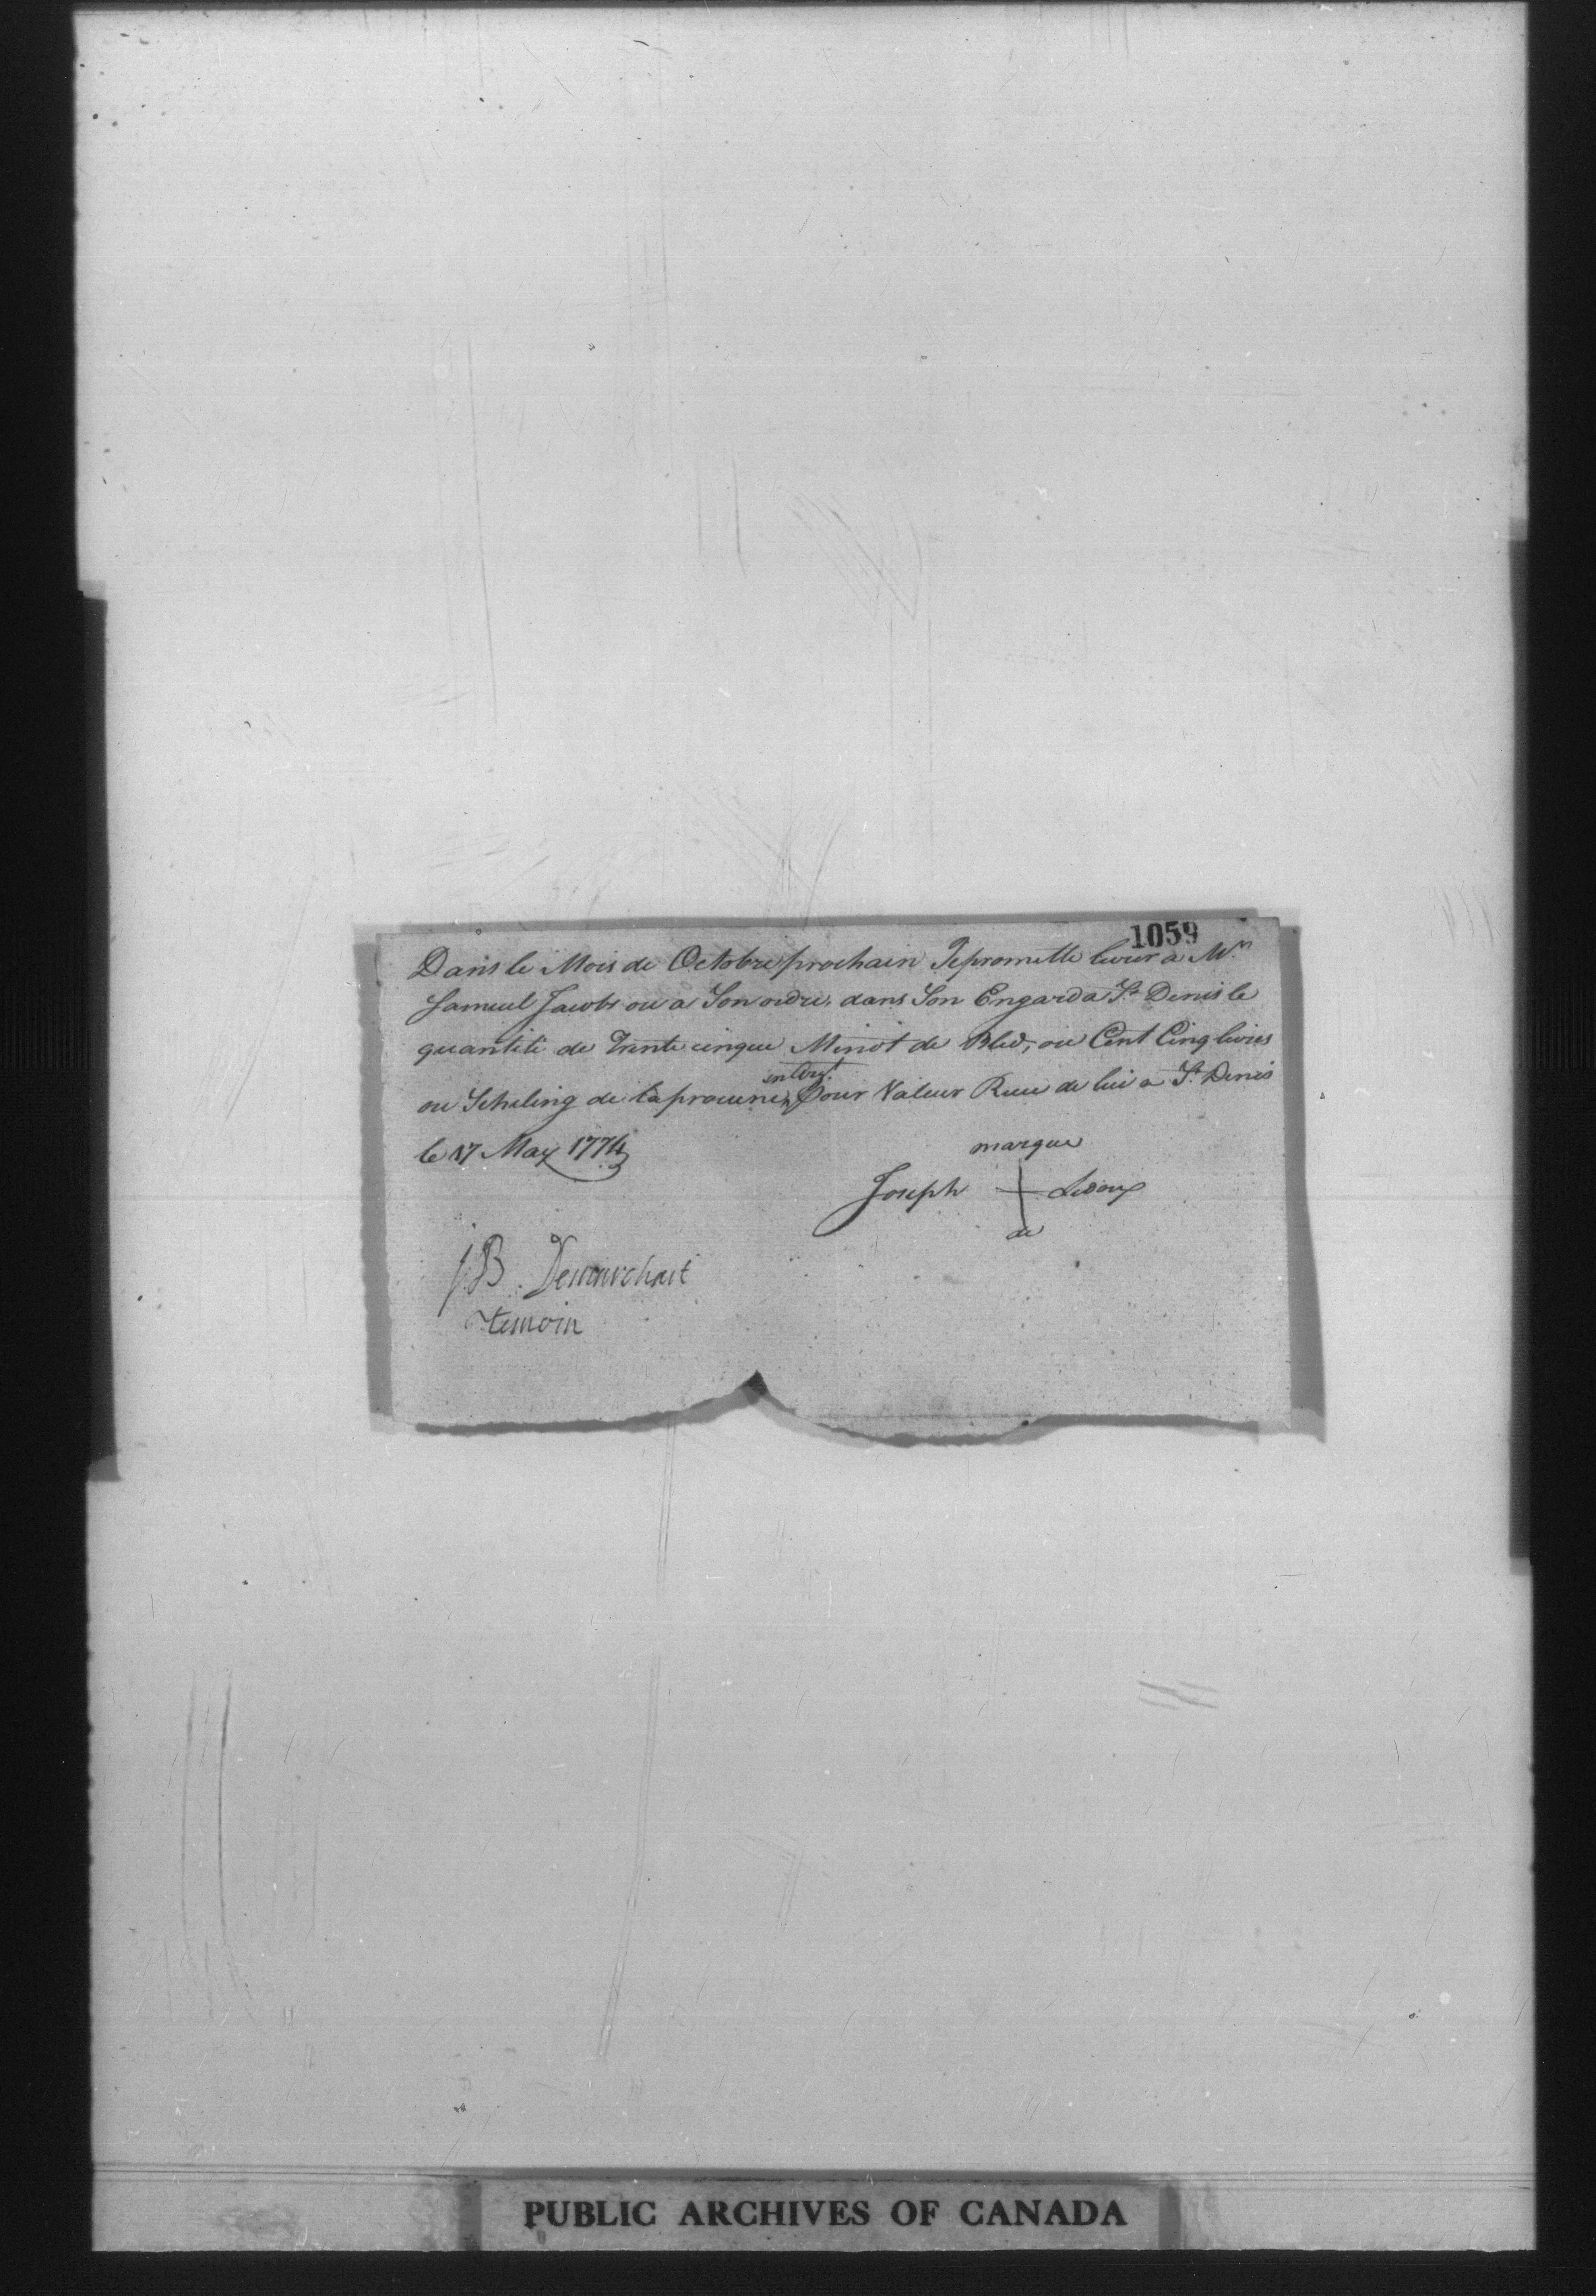 1059
Dans le Mois de Octobre prochain Jepromette livrer a Mr.
Samuel Jacobs ou a Son ordre, dans Son Engard a St. Denis le
quantité de Trente cinque Minot de Bled, ou Cent Cinq livres
en Argt.
ou Scheling de laprovince, Pour Valeur Recue de lui a St. Denis
le 17 May 1774
marque
Joseph + Ledoux
de
J.B. Demarchait
temoin
PUBLIC ARCHIVES OF CANADA